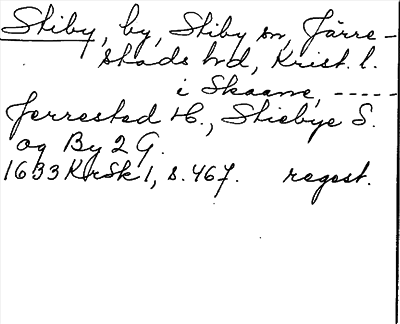 Stiby, by, Stiby sn, Järre-
stads hd, Krist. l.
i Skaane, -----
Jerrested H., Stiebye S.
og By 2 G.
1633 KrSk 1, s. 467. regest.